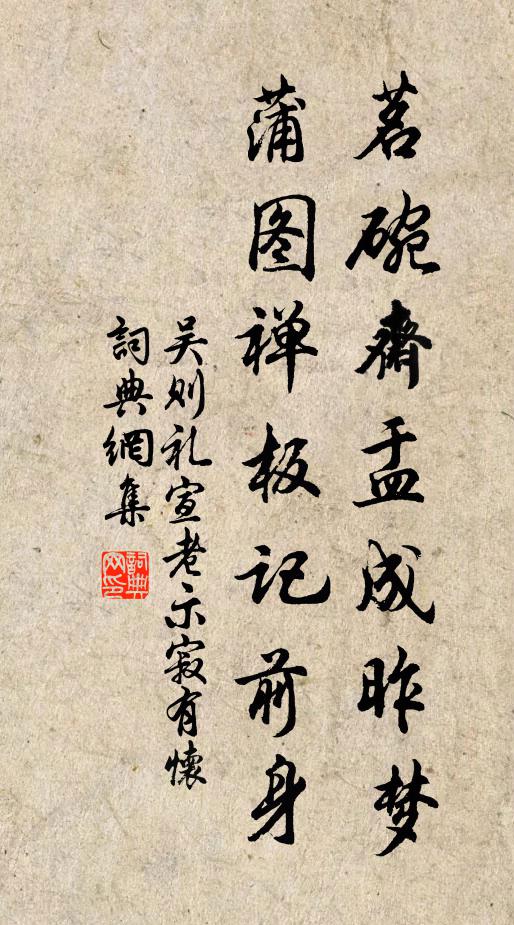 茗碗斋盂成昨梦
蒲图禅板记前身
吴则礼宣老示寂有怀
詞典網集
詞典网印